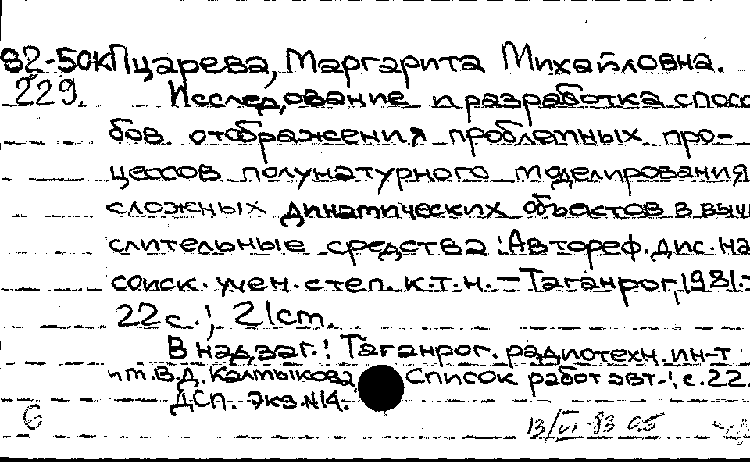 82-50к Пцарева, Маргарита Михайловна.
229. Исследование и разработка спосо
бов отображения проблемных про-
цессов полунатурного моделирования
сложных динамических объектов в вычи
слительные средства: Автореф. дис. на
соиск. учен. степ. к.т.н. - Таганрог, 1981.-
22 с.; 21 cm.
В надзаг.: Таганрог. радиотехн. ин-т
им. В.Д. Калмыкова Список работ авт.: с. 22.
ДСП. Экз. №14.
6 13/VI-83